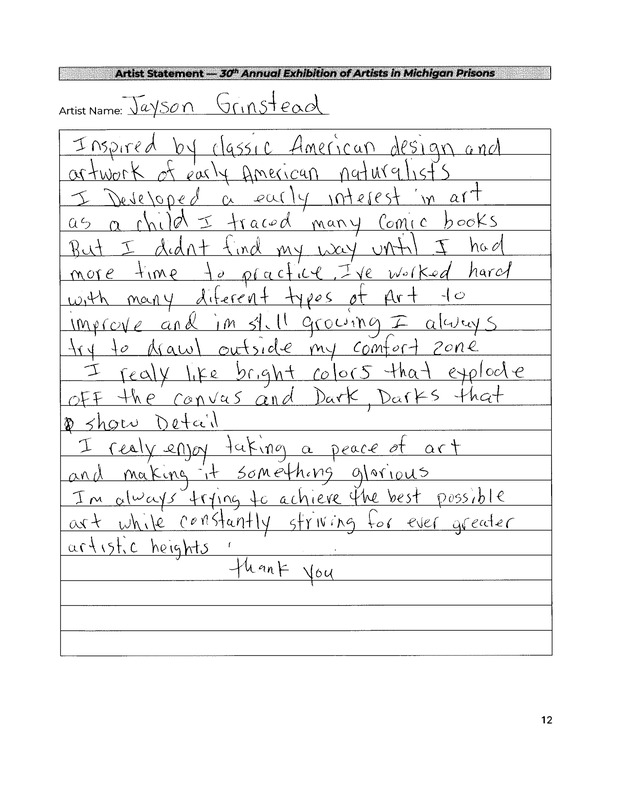 Artist Statement — 30th Annual Exhibition of Artists in Michigan Prisons
Artist Name: Jayson Grinstead
Inspired by classic American design and
artwork of early American naturalists
I Developed a early interest in art
as a child I traced many Comic books
But I didnt find my way until I had
more time to practice. I've worked hard
with many diferent types of Art to
improve and im still growing I always
try to drawl outside my comfort zone
I realy like bright colors that explode
OFF the canvas and Dark, Darks that
show Detail
I realy enjoy taking a peace of art
and making it something glorious
I'm always trying to achieve the best possible
art while constantly striving for ever greater
artistic heights
thank you
12